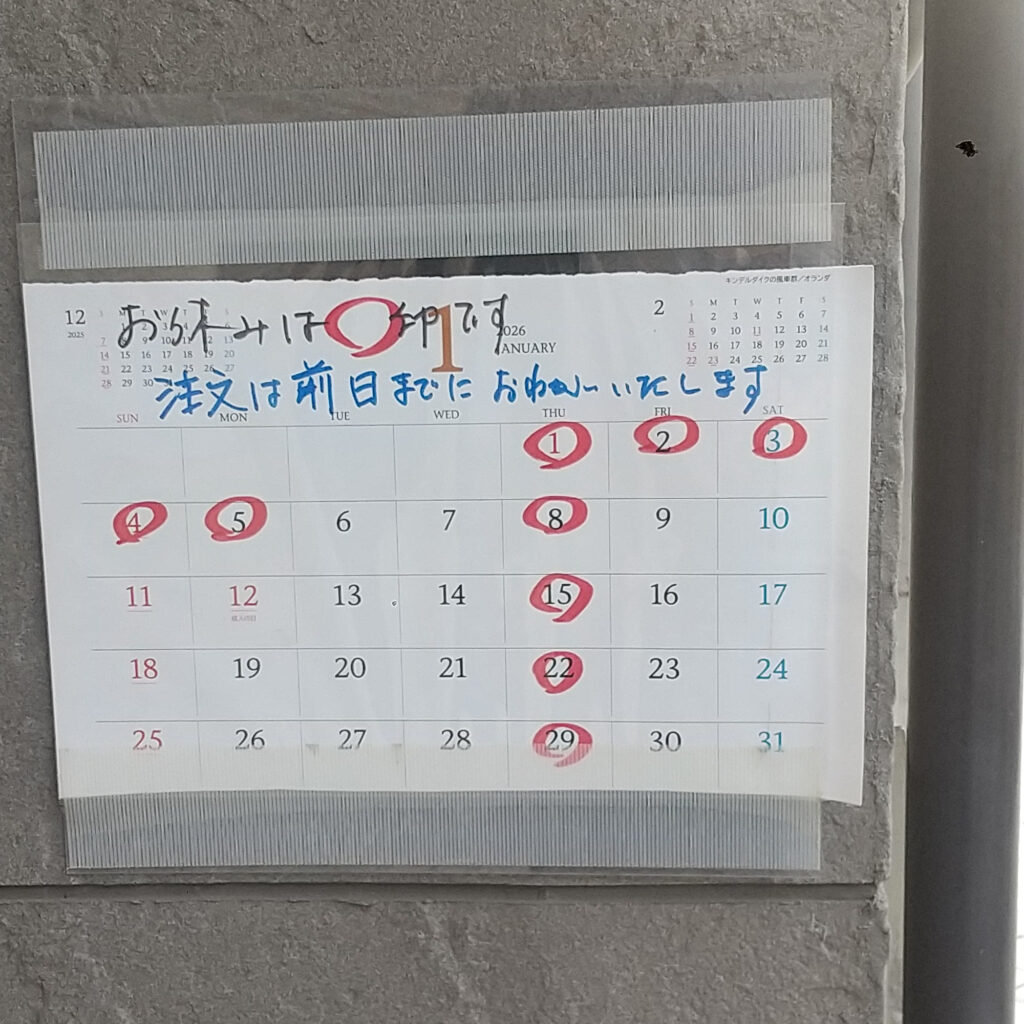 キンデルダイクの風車群/オランダ
12
2025
お休みは〇印です
1
2026
JANUARY
2
S M T W T F S
1 2 3 4 5 6 7
8 9 10 11 12 13 14
15 16 17 18 19 20 21
22 23 24 25 26 27 28
14 15 16 17 18 19 20
21 22 23 24 25 26 27
28 29 30
注文は前日までにおねがいいたします
SUN MON TUE WED THU FRI SAT
1 2 3
4 5 6 7 8 9 10
11 12 13 14 15 16 17
成人の日
18 19 20 21 22 23 24
25 26 27 28 29 30 31